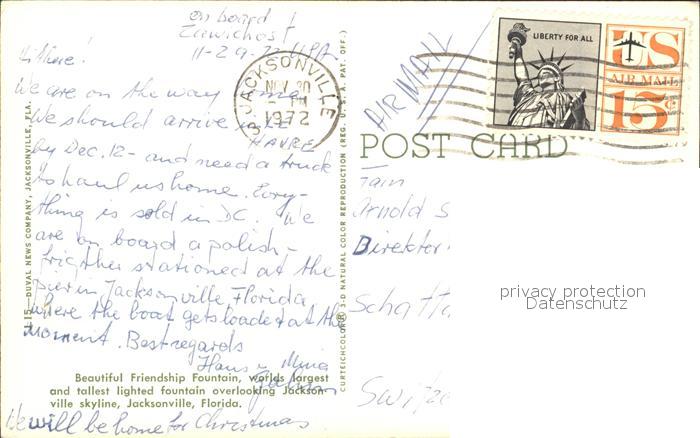 on board
Zawichost
11-29-72 USA.
Hi there!
We are on the way home
We should arrive in LE
HAVRE
by Dec. 12- and need a truck
to haul us home. Every-
thing is sold in DC. We
are on board a polish-
frigther stationed at the
pier in Jacksonville Florida
where the boat gets loaded at the
moment. Best regards
Hans u. Mina
We will be home for Christmas
Beautiful Friendship Fountain, worlds largest
and tallest lighted fountain overlooking Jackson-
ville skyline, Jacksonville, Florida.
J-15—DUVAL NEWS COMPANY, JACKSONVILLE, FLA.
CURTEICHCOLOR® 3-D NATURAL COLOR REPRODUCTION (REG. U.S.A. PAT. OFF.)
JACKSONVILLE
NOV 30
PM
1972
AIR MAIL
LIBERTY FOR ALL
US
AIR MAIL
15¢
POST CARD
Fam
Arnold S
Direktor
Schatt
Switze
privacy protection
Datenschutz